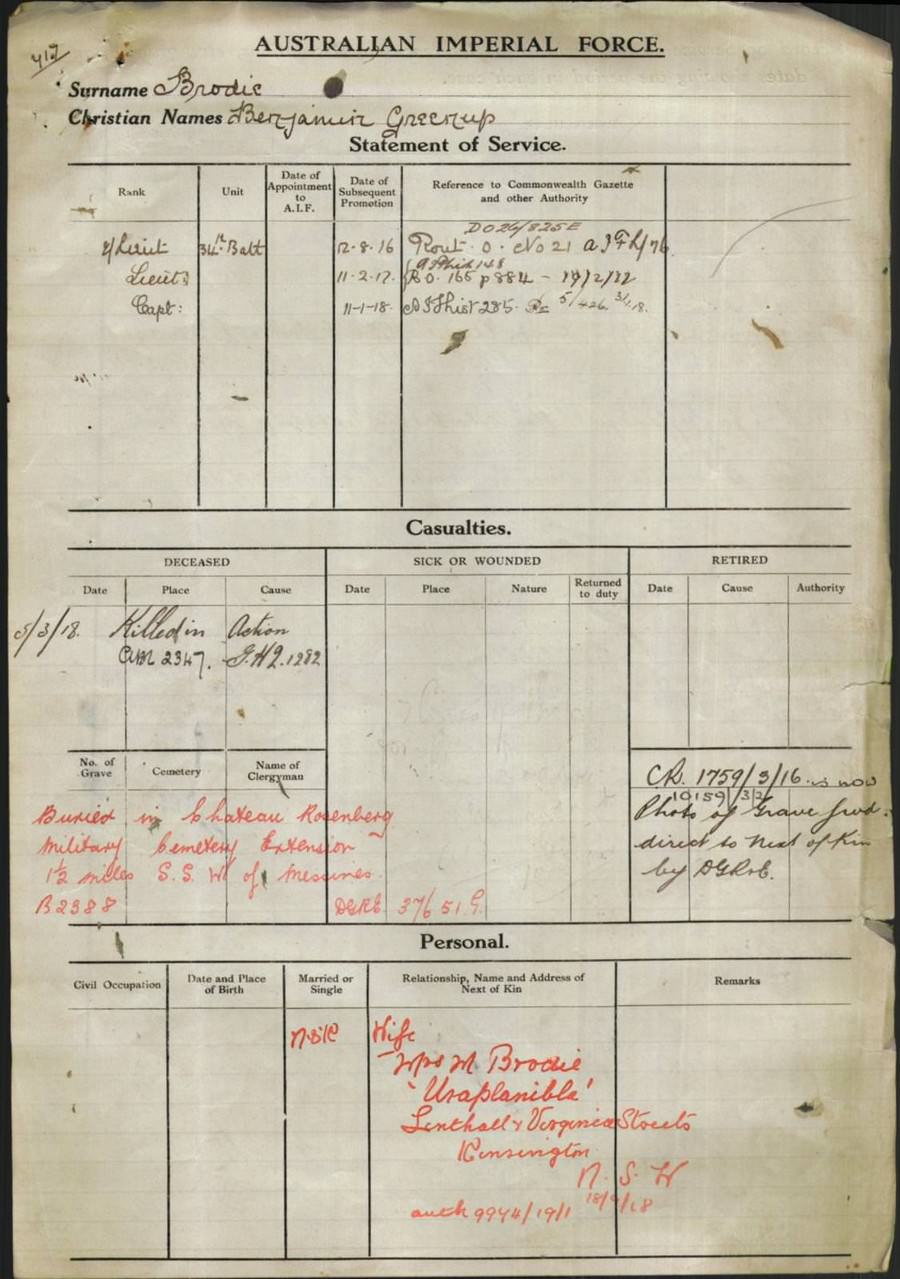 412
AUSTRALIAN IMPERIAL FORCE.
Surname Brodie
Christian Names Benjamin Greenup
Statement of Service.
Rank
Unit
Date of Appointment to A.I.F.
Date of Subsequent Promotion
Reference to Commonwealth Gazette and other Authority
DO26/825E
2/Lieut 34th Batt 12-8-16 Rout. O. No 21
Lieut: 11-2-17. R O. 165 p 884 -
Capt: 11-1-18. 285. 5/426
Casualties.
DECEASED
SICK OR WOUNDED
RETIRED
Date Place Cause
Date Place Nature Returned to duty
Date Cause Authority
5/3/18. Killed in Action
2347. G.H.Q. 1282
No. of Grave
Cemetery
Name of Clergyman
C.R. 1759/3/16 is now
10159/3/2
Photo of Grave fwd.
direct to Next of Kin
by DGR&E.
Buried in Chateau Rosenberg
Military Cemetery Extension
1½ miles S.S.W of Messines.
B2388 DGRE. 37/6 51 G.
Personal.
Civil Occupation
Date and Place of Birth
Married or Single
Relationship, Name and Address of Next of Kin
Remarks
N.O.K Wife
Mrs M Brodie
Lenthall & Virginia Streets
Kensington
N. S. W
auth 9944/19/1